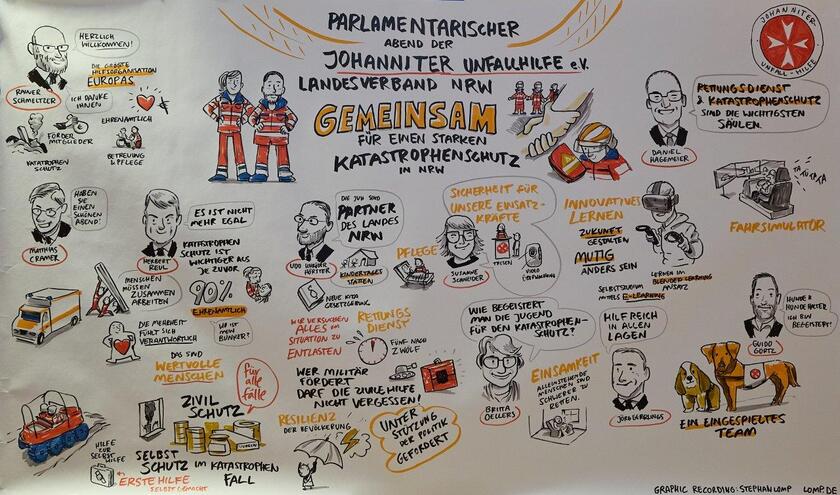 PARLAMENTARISCHER
ABEND DER
JOHANNITER UNFALLHILFE e.V.
LANDESVERBAND NRW
GEMEINSAM
FÜR EINEN STARKEN
KATASTROPHENSCHUTZ
IN NRW
JOHANNITER
UNFALL-HILFE
HERZLICH
WILLKOMMEN!
DIE GRÖSSTE
HILFSORGANISATION
EUROPAS
RAINER
SCHMELTZER
ICH DANKE
IHNEN
FÖRDER
MITGLIEDER
EHRENAMTLICH
KATASTROPHEN
SCHUTZ
BETREUUNG
& PFLEGE
RETTUNGSDIENST
& KATASTROPHENSCHUTZ
SIND DIE WICHTIGSTEN
SÄULEN.
DANIEL
HAGEMEIER
HABEN
SIE
EINEN
SCHÖNEN
ABEND!
MATTHIAS
CRAMER
ES IST NICHT
MEHR EGAL
HERBERT
REUL
KATASTROPHEN
SCHUTZ IST
WICHTIGER ALS
JE ZUVOR
MENSCHEN
MÜSSEN
ZUSAMMEN
ARBEITEN
90%
EHRENAMTLICH
WO IST
MEIN
BUNKER?
DIE MEHRHEIT
FÜHLT SICH
VERANTWORTLICH
DAS SIND
WERTVOLLE
MENSCHEN
DIE JUH SIND
PARTNER
DES LANDES
NRW
KINDERTAGES
STÄTTEN
NEUE KITA
GESETZGEBUNG
WIR VERSUCHEN
ALLES UM
SITUATION ZU
ENTLASTEN
RETTUNGS
DIENST
FÜNF NACH
ZWÖLF
WER MILITÄR
FÖRDERT
DARF DIE ZIVILE HILFE
NICHT VERGESSEN!
SICHERHEIT FÜR
UNSERE EINSATZ-
KRÄFTE
PFLEGE
SUSANNE
SCHNEIDER
VIDEO
INNOVATIVES
LERNEN
ZUKUNFT
GESTALTEN
MUTIG
ANDERS SEIN
LERNEN IM
BLENDED-LEARNING
ANSATZ
SELBSTSTUDIUM
MITTELS E-LEARNING
TATÜTATA
FAHRSIMULATOR
WIE BEGEISTERT
MAN DIE JUGEND
FÜR DEN KATASTROPHEN-
SCHUTZ?
BRITTA
OELLERS
HILFREICH
IN ALLEN
LAGEN
JÖRG GEERLINGS
EINSAMKEIT
ALLEINSTEHENDE
MENSCHEN SIND
SCHWERER ZU
RETTEN.
HUNDE &
HUNDEHALTER
ICH BIN
BEGEISTERT!
GUIDO
GÖRTZ
EIN EINGESPIELTES
TEAM
für
alle
fälle
ZIVIL
SCHUTZ
HILFE
ZUR
SELBST
HILFE
SELBST
SCHUTZ IM KATASTROPHEN
FALL
ERSTE HILFE
SELBST GEMACHT
RESILIENZ
DER BEVÖLKERUNG
UNTER
STÜTZUNG
DER POLITIK
GEFORDERT
GRAPHIC RECORDING: STEPHAN LOMP LOMP.DE